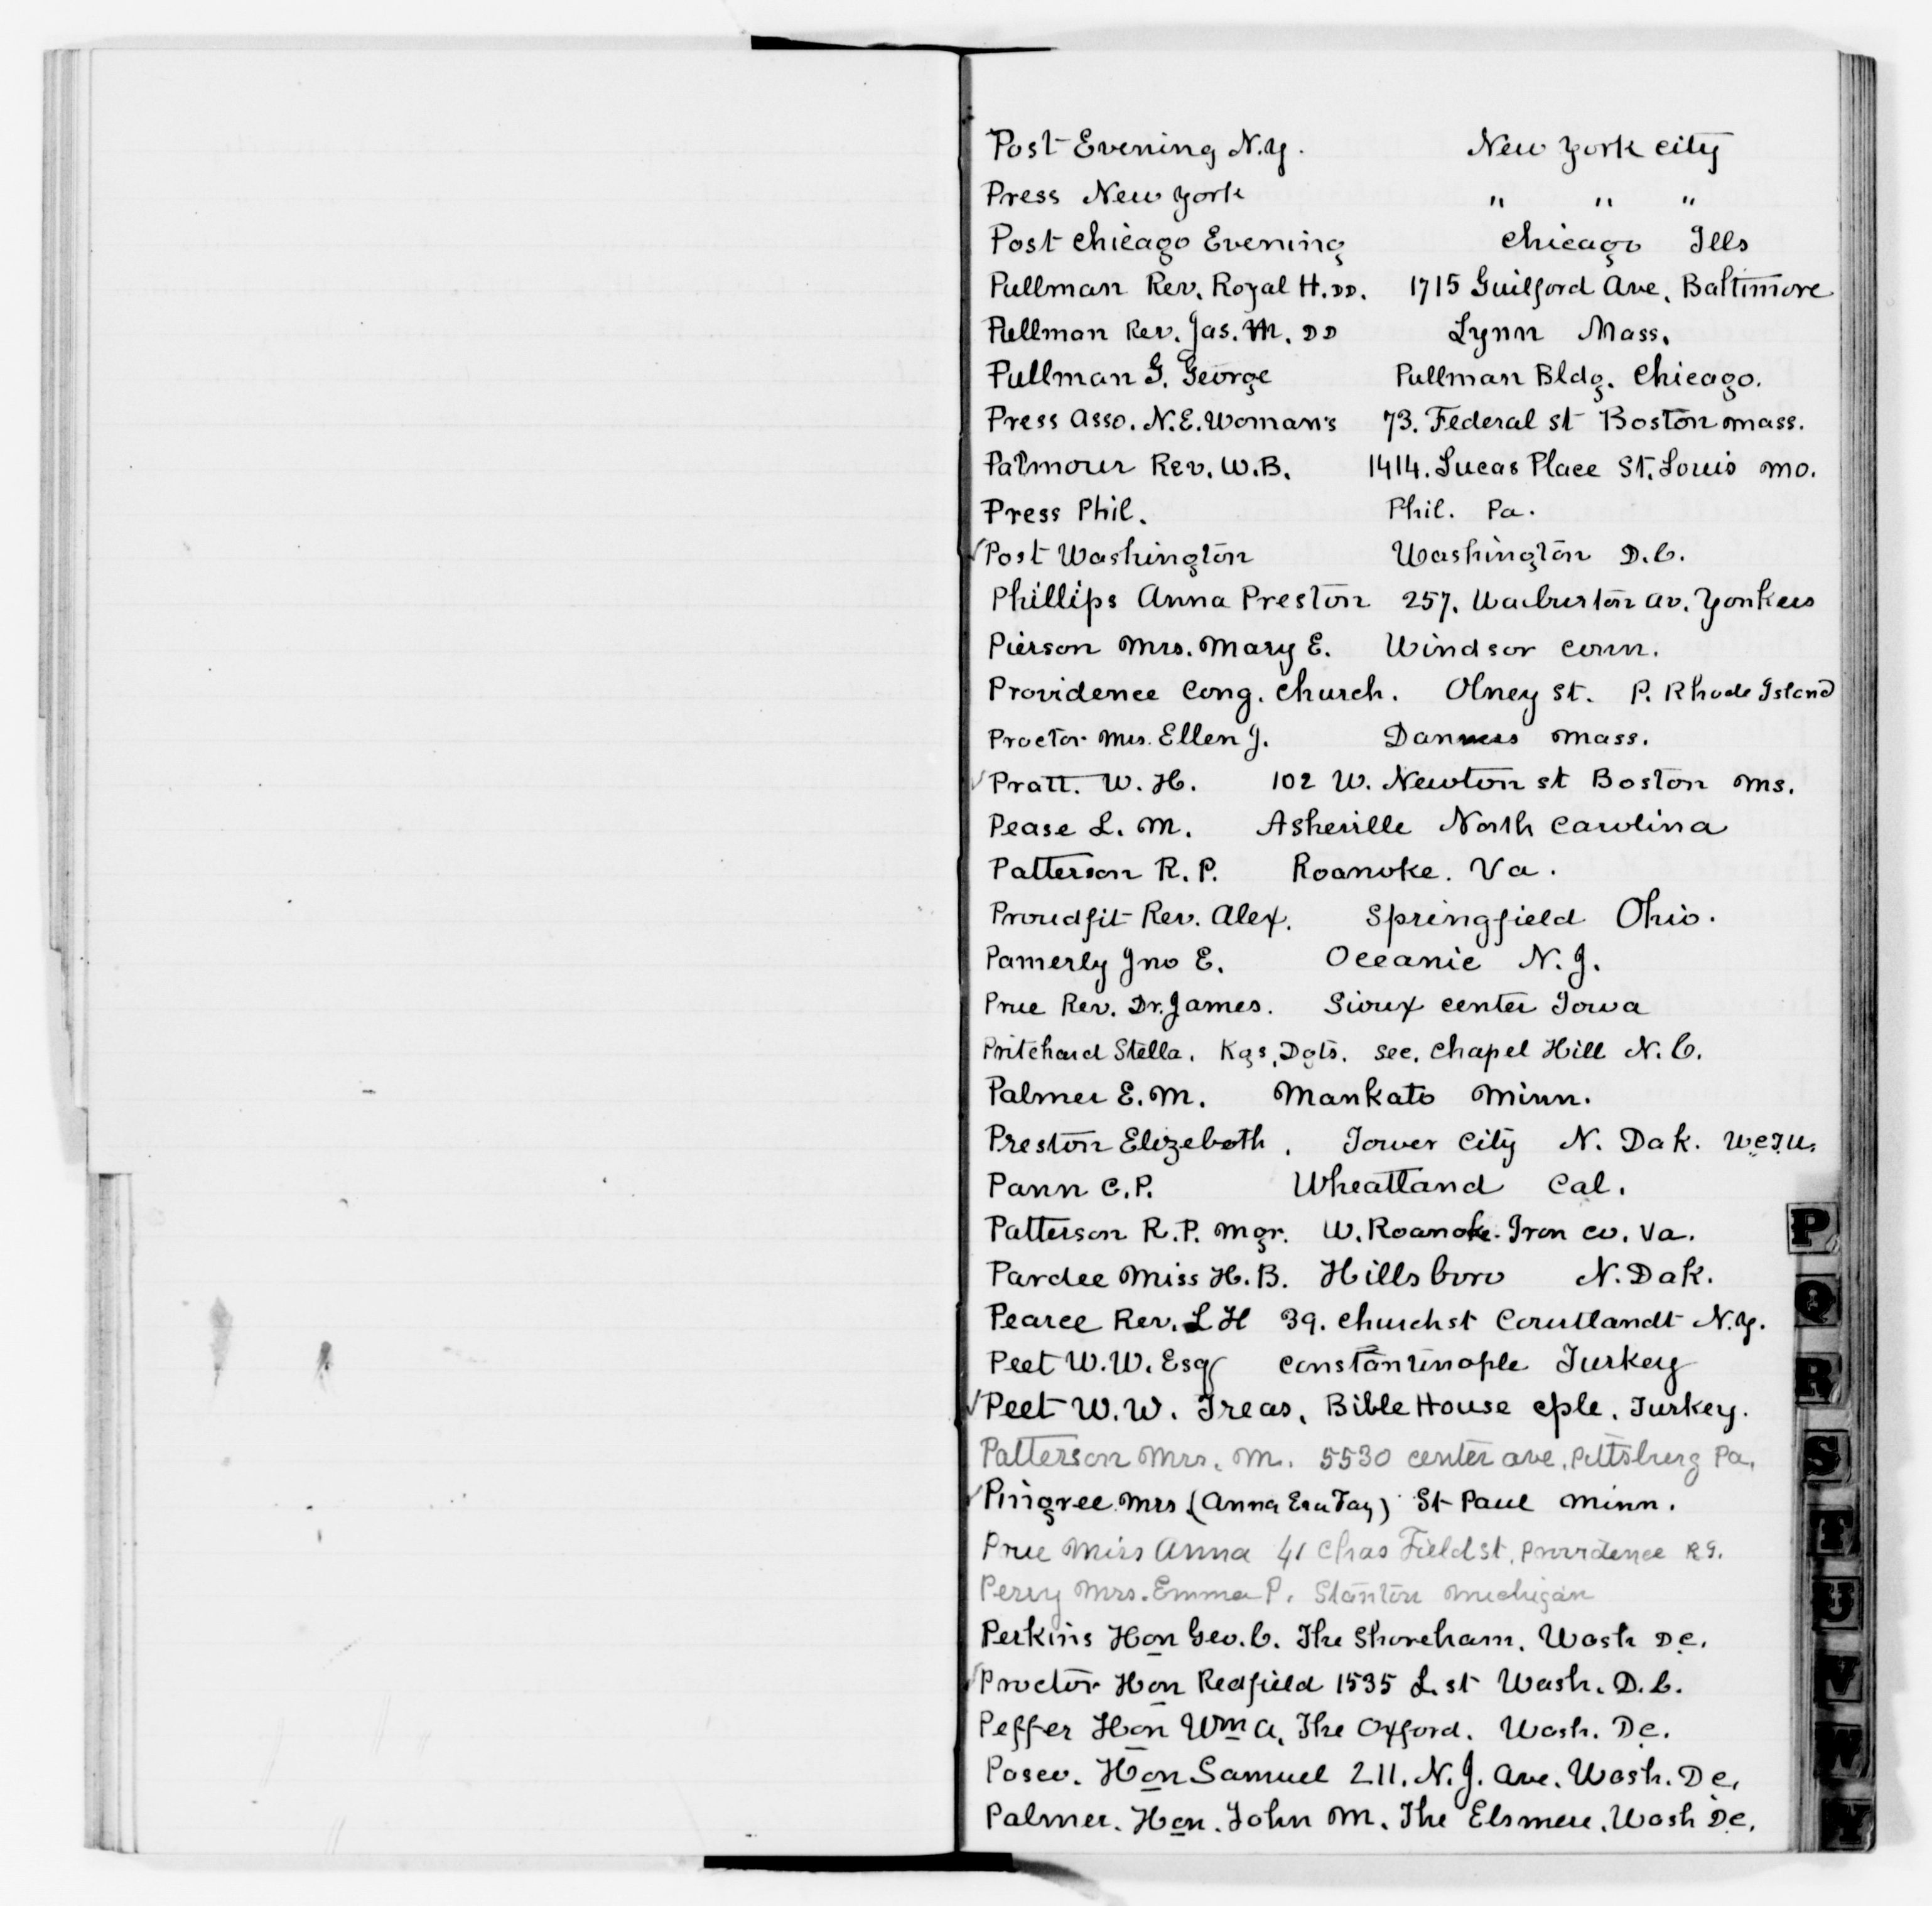 Post Evening N.Y. New York City
Press New York " " "
Post Chicago Evening Chicago Ills
Pullman Rev. Royal H. DD. 1715 Guilford Ave. Baltimore
Pullman Rev. Jas. M. DD Lynn Mass.
Pullman G. George Pullman Bldg. Chicago.
Press Asso. N.E. Woman's 73. Federal st Boston Mass.
Palmour Rev. W.B. 1414. Lucas Place St. Louis Mo.
Press Phil. Phil. Pa.
✓ Post Washington Washington D.C.
Phillips Anna Preston 257. Warburton Av. Yonkers
Pierson Mrs. Mary E. Windsor Conn.
Providence Cong. Church. Olney St. P. Rhode Island
Proctor Mrs. Ellen J. Danvers Mass.
✓ Pratt. W. H. 102 W. Newton st Boston Ms.
Pease L. M. Asheville North Carolina
Patterson R. P. Roanoke. Va.
Proudfit Rev. Alex. Springfield Ohio.
Pamerly Jno E. Oceanic N. J.
Prue Rev. Dr. James. Sioux Center Iowa
Pritchard Stella. Kgs. Dgts. Sec. Chapel Hill N. C.
Palmer E. M. Mankato Minn.
Preston Elizebeth. Tower City N. Dak. W.C.T.U.
Pann C. P. Wheatland Cal.
Patterson R. P. Mgr. W. Roanoke Iron Co. Va.
Pardee Miss H. B. Hillsboro N. Dak.
Pearce Rev. L H 39. Church st Courtlandt N.Y.
Peet W. W. Esq Constantinople Turkey
✓ Peet W. W. Treas. Bible House Cple. Turkey.
Patterson Mrs. M. 5530 Center Ave. Pittsburg Pa.
✓ Pingree Mrs (Anna Eva Fay) St Paul Minn.
Prue Miss Anna 41 Chas Field st. Providence R I.
Perry Mrs. Emma P. Stanton Michigan
Perkins Hon Geo. C. The Shoreham. Wash DC.
✓ Proctor Hon Redfield 1535 L. st Wash. D.C.
Peffer Hon Wm A. The Oxford. Wash. DC.
Pasco. Hon Samuel 211. N. J. Ave. Wash. DC.
Palmer. Hon. John M. The Elsmere. Wash DC.
P
Q
R
S
T
U
V
W
Y